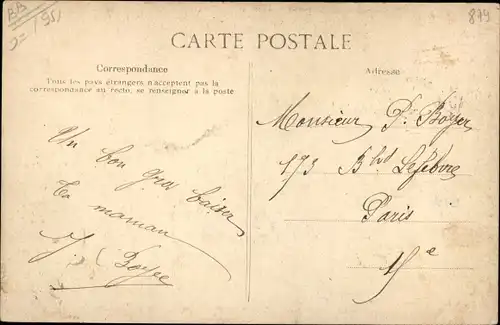 BB
874
CARTE POSTALE
Correspondance
Tous les pays étrangers n'acceptent pas la
correspondance au recto, se renseigner à la poste
Adresse
Un bon gros baiser
Ta maman
Boyer
Monsieur P. Boyer
173 Bld Lefebvre
Paris
15e